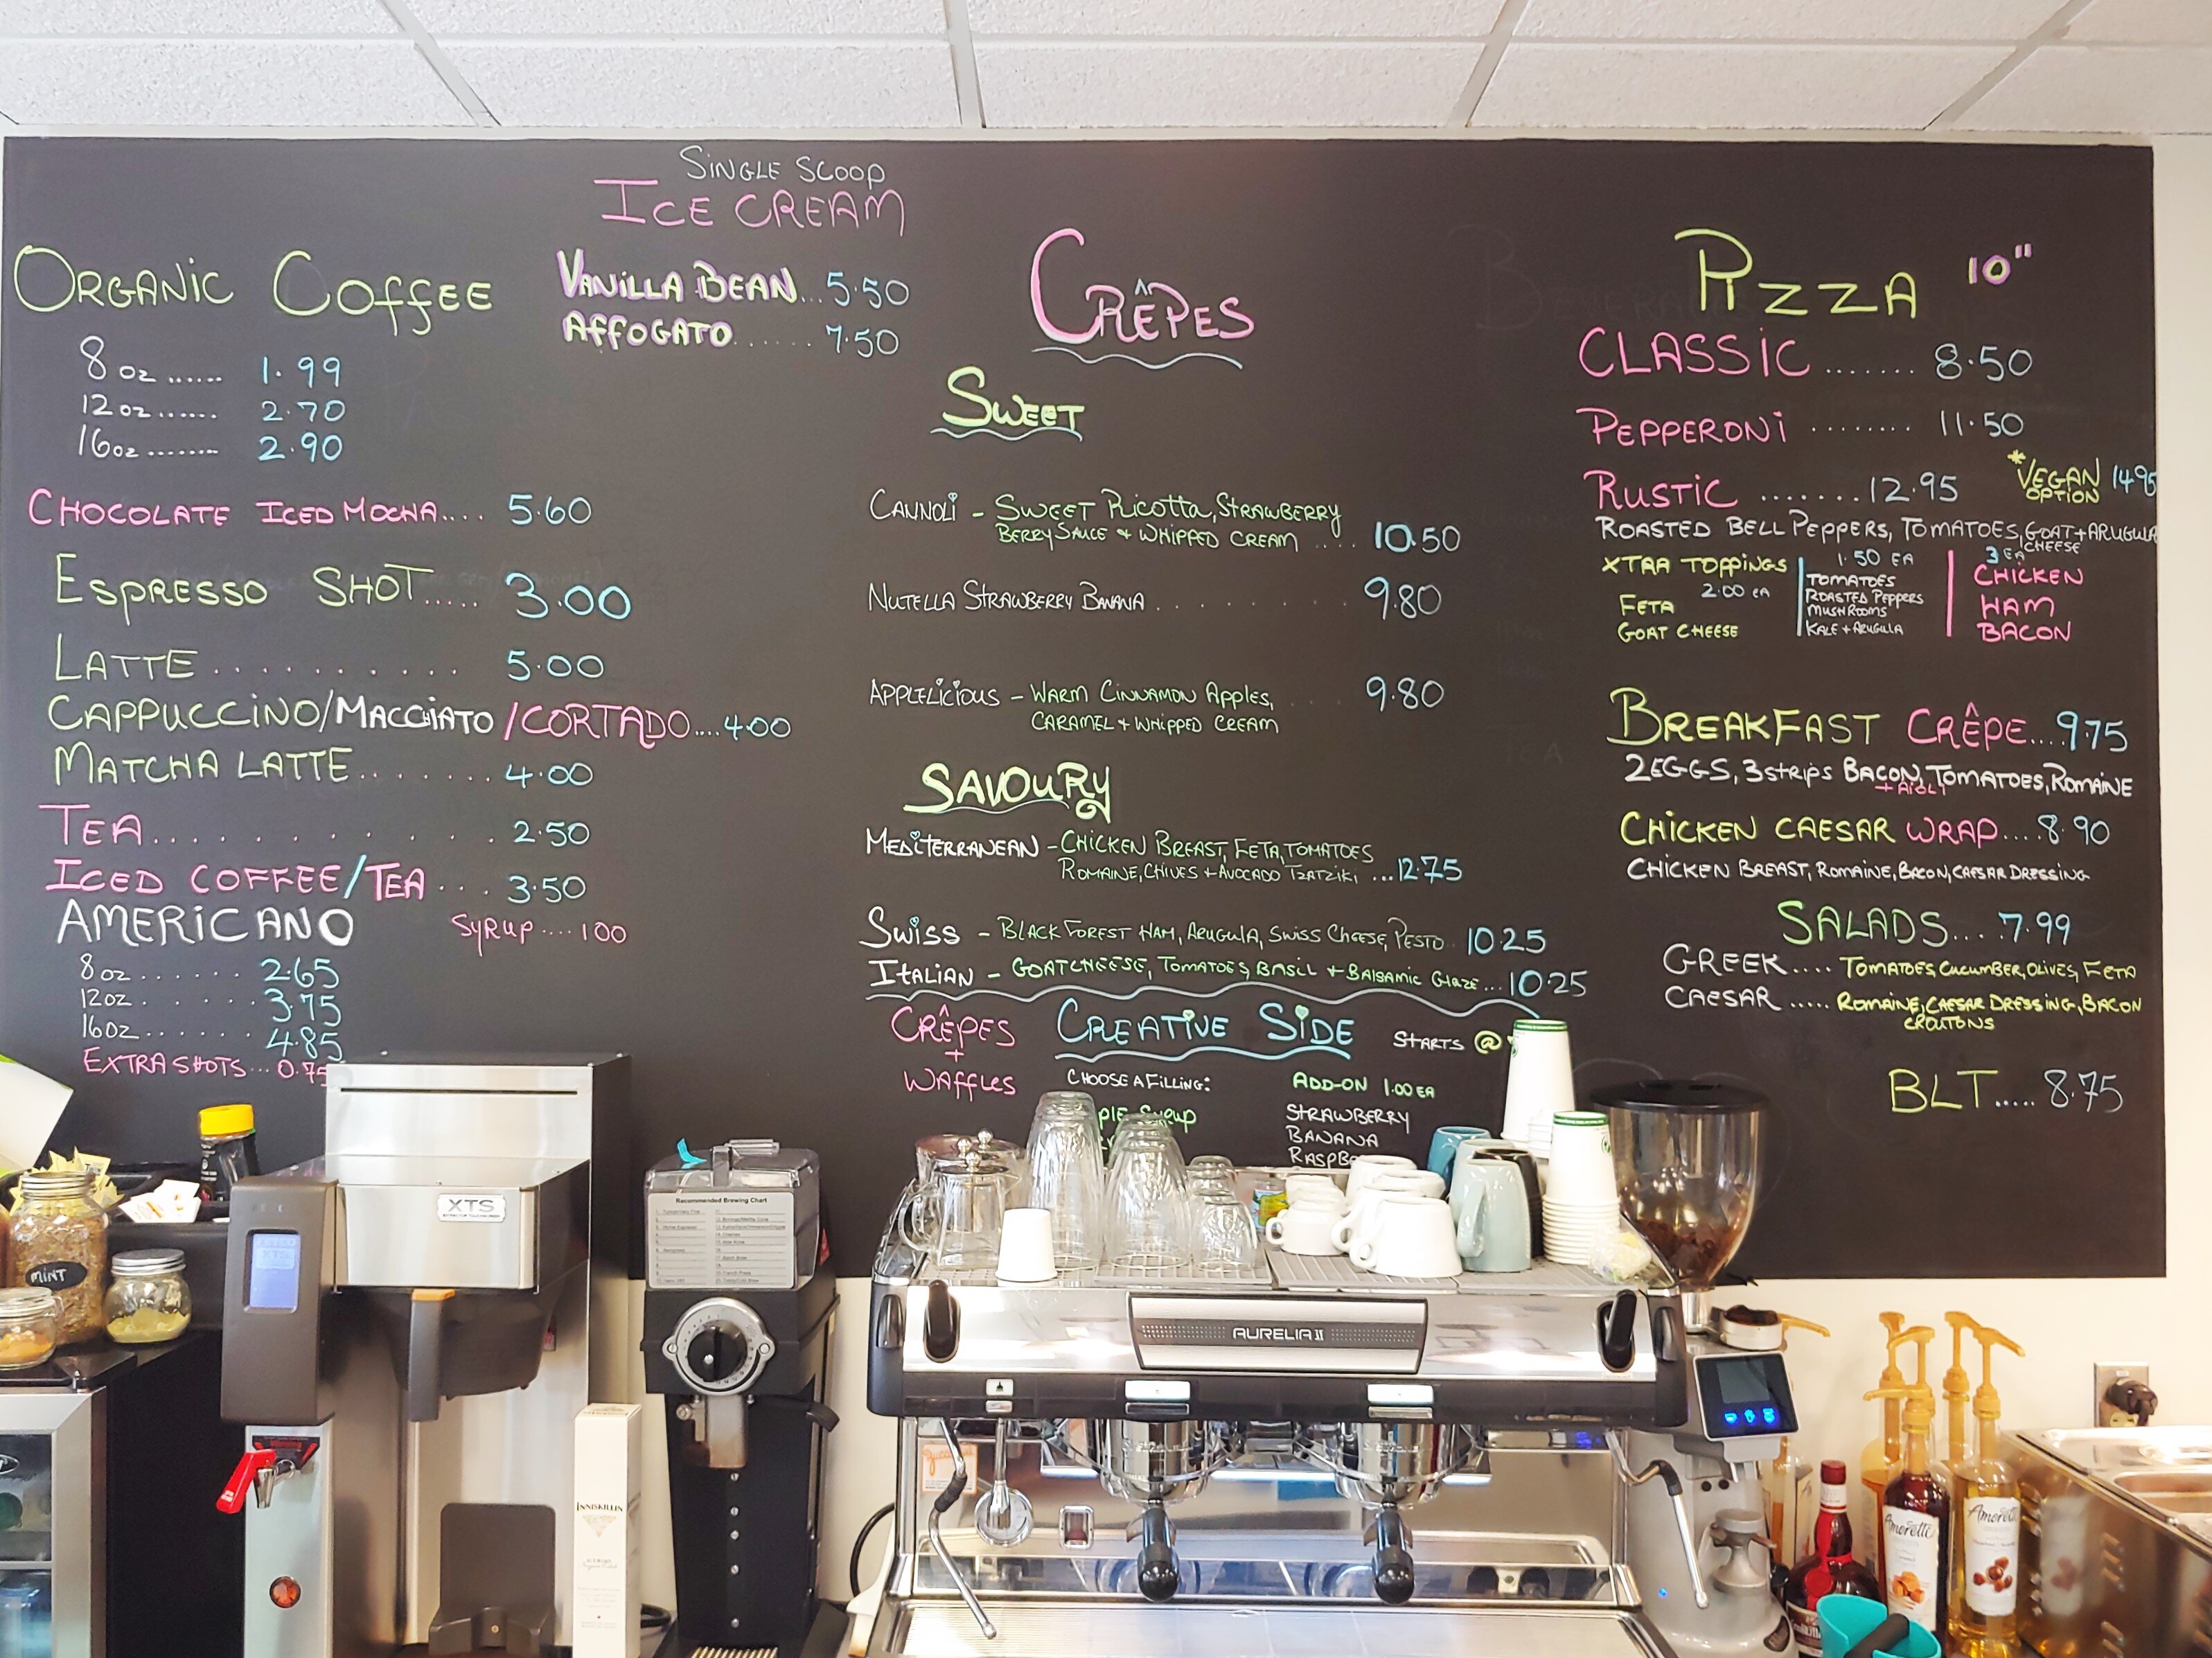 SINGLE SCOOP
ICE CREAM
VANILLA BEAN...5.50
AFFOGATO...... 7.50
ORGANIC COFFEE
8 oz ...... 1.99
12 oz ...... 2.70
16 oz ........ 2.90
CHOCOLATE ICED MOCHA.... 5.60
ESPRESSO SHOT..... 3.00
LATTE.......... 5.00
CAPPUCCINO/MACCHIATO/CORTADO....4.00
MATCHA LATTE....... 4.00
TEA............ 2.50
ICED COFFEE/TEA... 3.50
AMERICANO
SYRUP....100
8 oz...... 2.65
12oz...... 3.75
16oz...... 4.85
EXTRA SHOTS... 0.75
CRÊPES
SWEET
CANNOLI - SWEET RICOTTA, STRAWBERRY
BERRY SAUCE + WHIPPED CREAM .... 10.50
NUTELLA STRAWBERRY BANANA ........ 9.80
APPLELICIOUS - WARM CINNAMON APPLES, ... 9.80
CARAMEL + WHIPPED CREAM
SAVOURY
MEDITERRANEAN - CHICKEN BREAST, FETA, TOMATOES
ROMAINE, CHIVES + AVOCADO TZATZIKI, ...12.75
SWISS - BLACK FOREST HAM, ARUGULA, SWISS CHEESE, PESTO.. 10.25
ITALIAN - GOAT CHEESE, TOMATOES, BASIL + BALSAMIC GLAZE...10.25
CRÊPES
+
WAFFLES
CREATIVE SIDE
STARTS @
CHOOSE A FILLING:
ADD-ON 1.00 EA
STRAWBERRY
BANANA
PIZZA 10"
CLASSIC ....... 8.50
PEPPERONI ........ 11.50
RUSTIC .......12.95
*VEGAN 14.95
OPTION
ROASTED BELL PEPPERS, TOMATOES, GOAT CHEESE + ARUGULA
XTRA TOPPINGS
2.00 EA
FETA
GOAT CHEESE
1.50 EA
TOMATOES
ROASTED PEPPERS
MUSHROOMS
KALE + ARUGULA
3 EA
CHICKEN
HAM
BACON
BREAKFAST CRÊPE....9.75
2 EGGS, 3 strips BACON, TOMATOES, ROMAINE
+ AIOLI
CHICKEN CAESAR WRAP....8.90
CHICKEN BREAST, ROMAINE, BACON, CAESAR DRESSING
SALADS.... 7.99
GREEK.... TOMATOES, CUCUMBER, OLIVES, FETA
CAESAR ..... ROMAINE, CAESAR DRESSING, BACON
CROUTONS
BLT..... 8.75
XTS
Recommended Brewing Chart
MINT
AURELIA II
INNISKILLIN
Amoretti
Amoretti